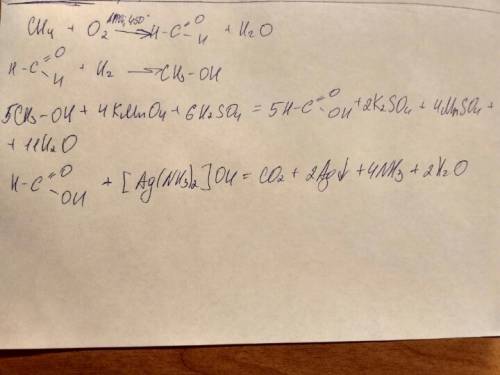 CH₄ + O₂ → H-C=O H + H₂O
H-C=O H + H₂ → CH₃-OH
5CH₃-OH + 4KMnO₄ + 6H₂SO₄ = 5H-C=O OH + 2K₂SO₄ + 4MnSO₄ +
+ 11H₂O
H-C=O OH + [Ag(NH₃)₂]OH = CO₂ + 2Ag↓ + 4NH₃ + 2H₂O